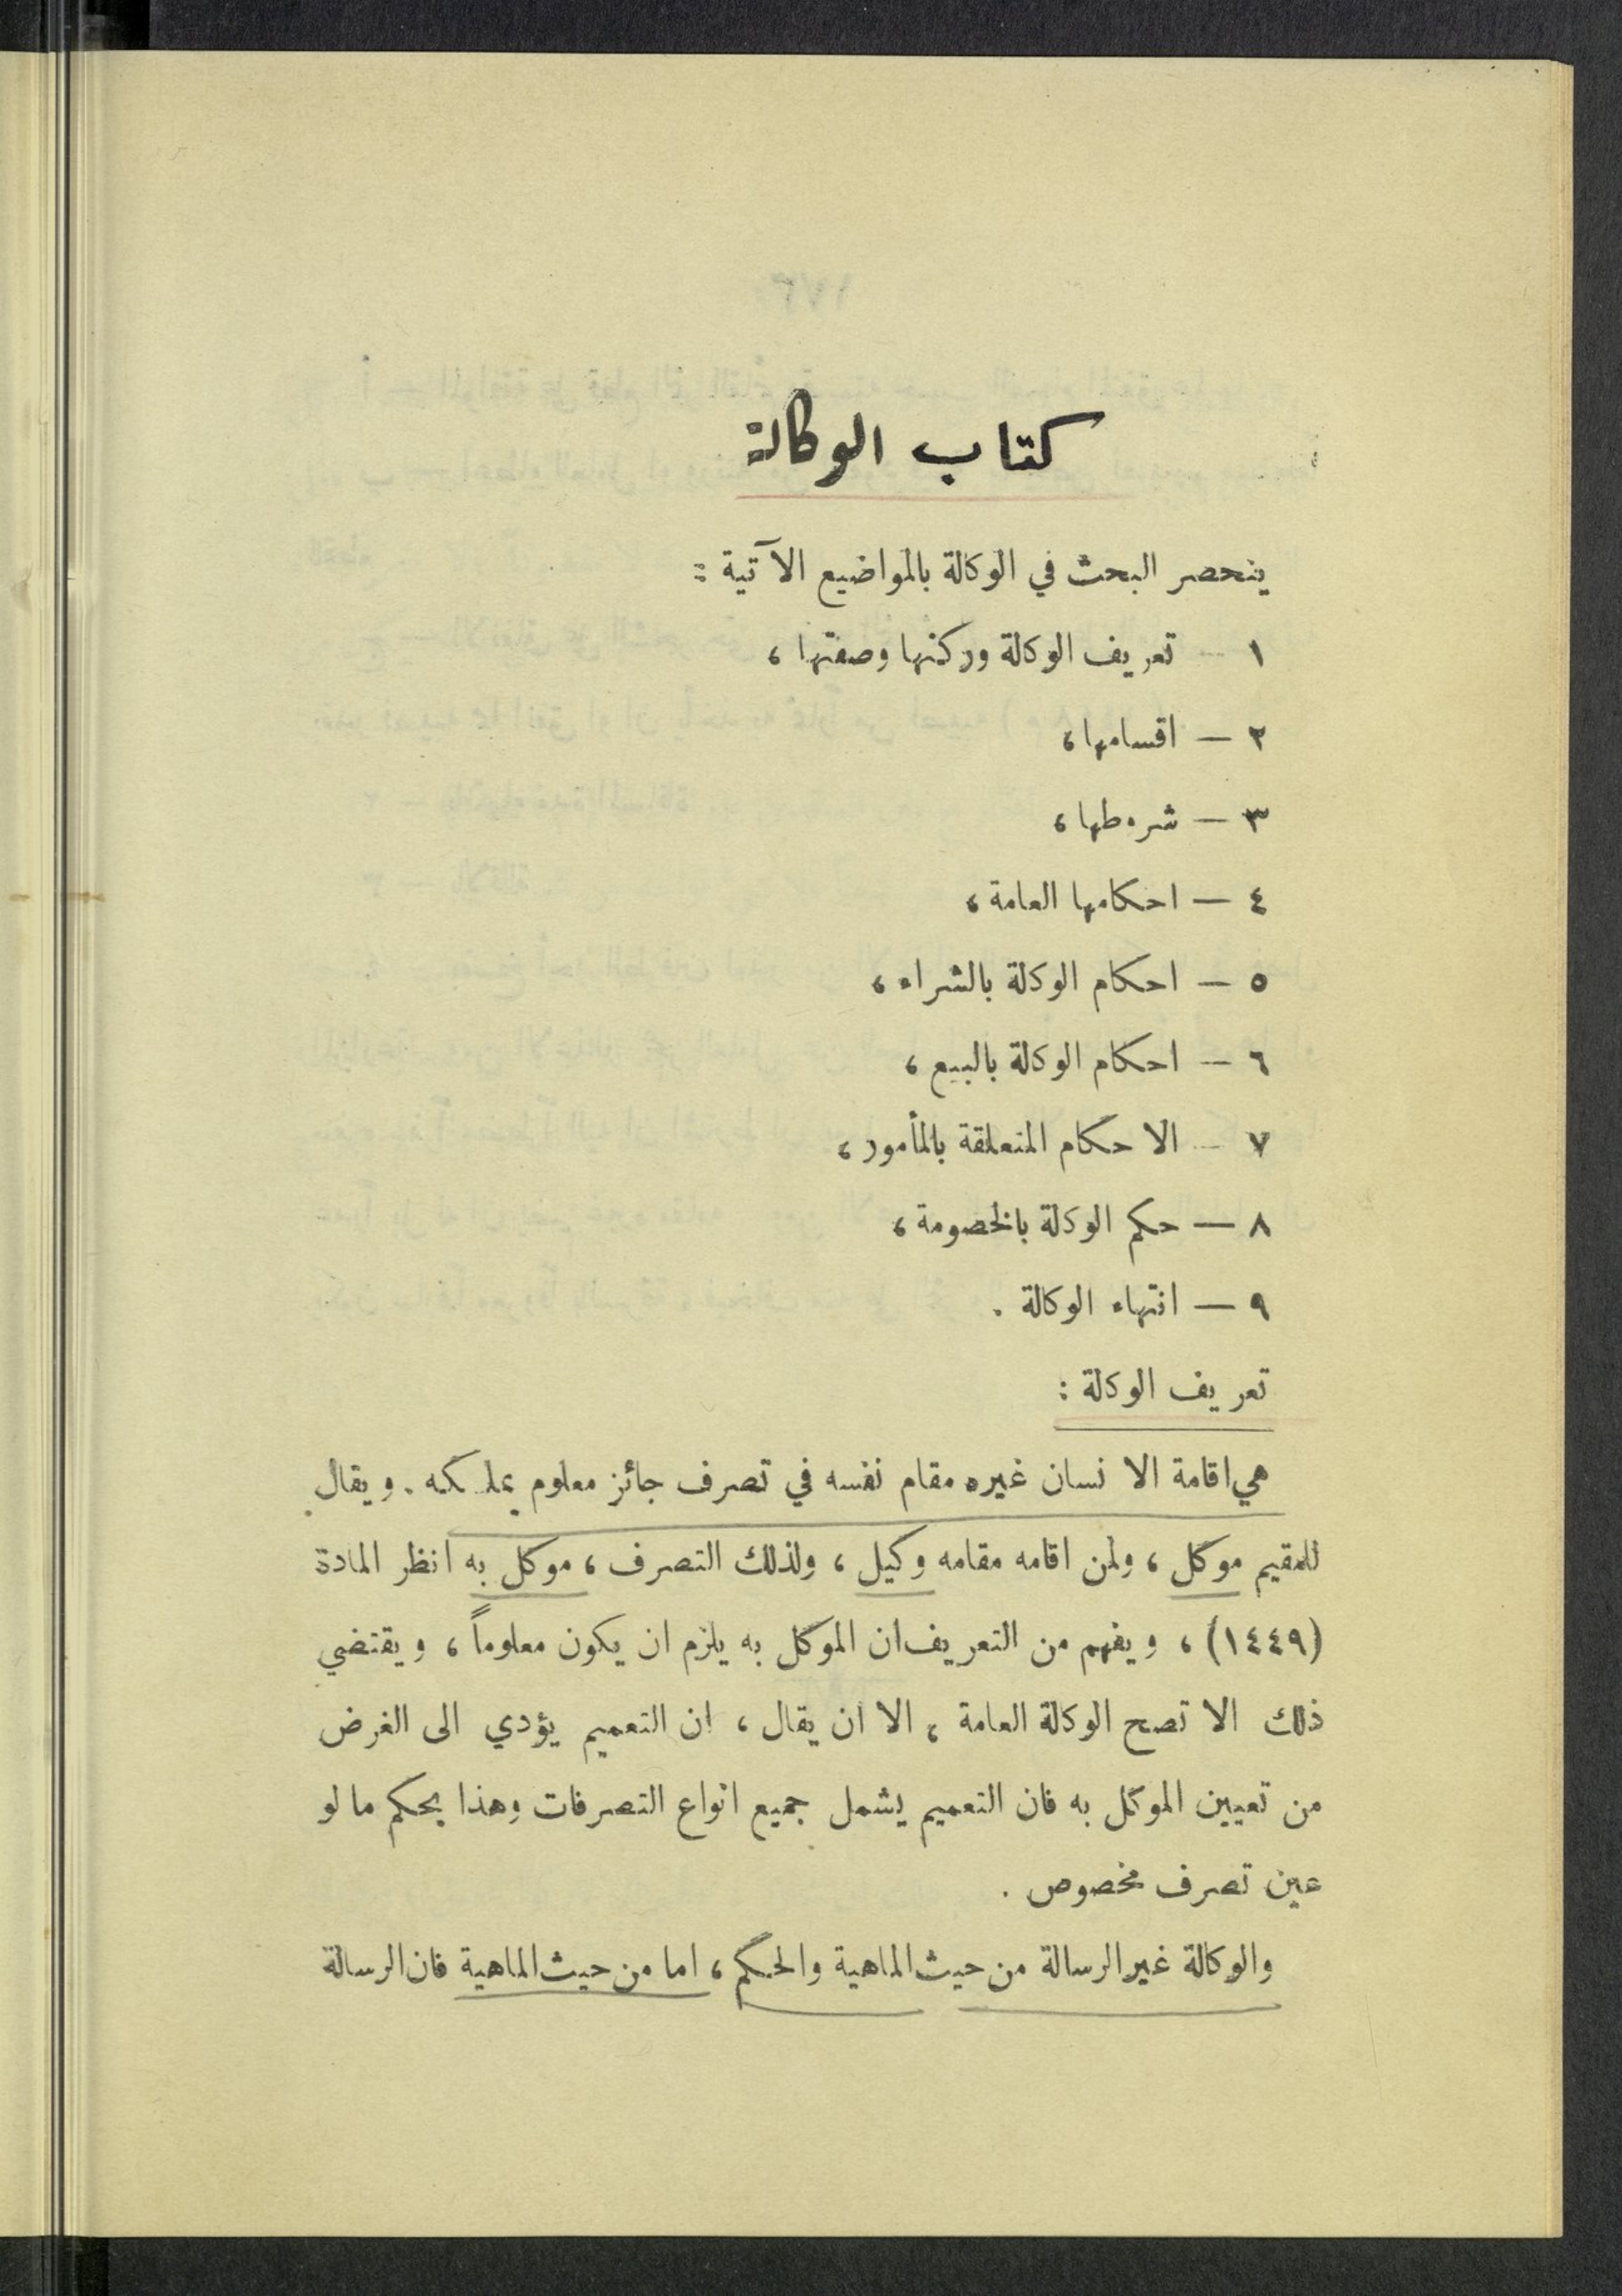 كتاب الوكالة
ينحصر البحث في الوكالة بالمواضيع الآتية :
١ — تعريف الوكالة وركنها وصفتها ،
٢ — اقسامها ،
٣ — شروطها ،
٤ — احكامها العامة ،
٥ — احكام الوكالة بالشراء ،
٦ — احكام الوكالة بالبيع ،
٧ — الاحكام المتعلقة بالمأمور ،
٨ — حكم الوكالة بالخصومة ،
٩ — انتهاء الوكالة .
تعريف الوكالة :
هي اقامة الانسان غيره مقام نفسه في تصرف جائز معلوم يملكه . ويقال
للمقيم موكل ، ولمن اقامه مقامه وكيل ، ولذلك التصرف ، موكل به انظر المادة
(١٤٤٩) ، ويفهم من التعريف ان الموكل به يلزم ان يكون معلوماً ، ويقتضي
ذلك الا تصح الوكالة العامة ، الا ان يقال ، ان التعميم يؤدي الى الغرض
من تعيين الموكل به فان التعميم يشمل جميع انواع التصرفات وهذا بحكم ما لو
عين تصرف مخصوص .
والوكالة غير الرسالة من حيث الماهية والحكم ، اما من حيث الماهية فان الرسالة